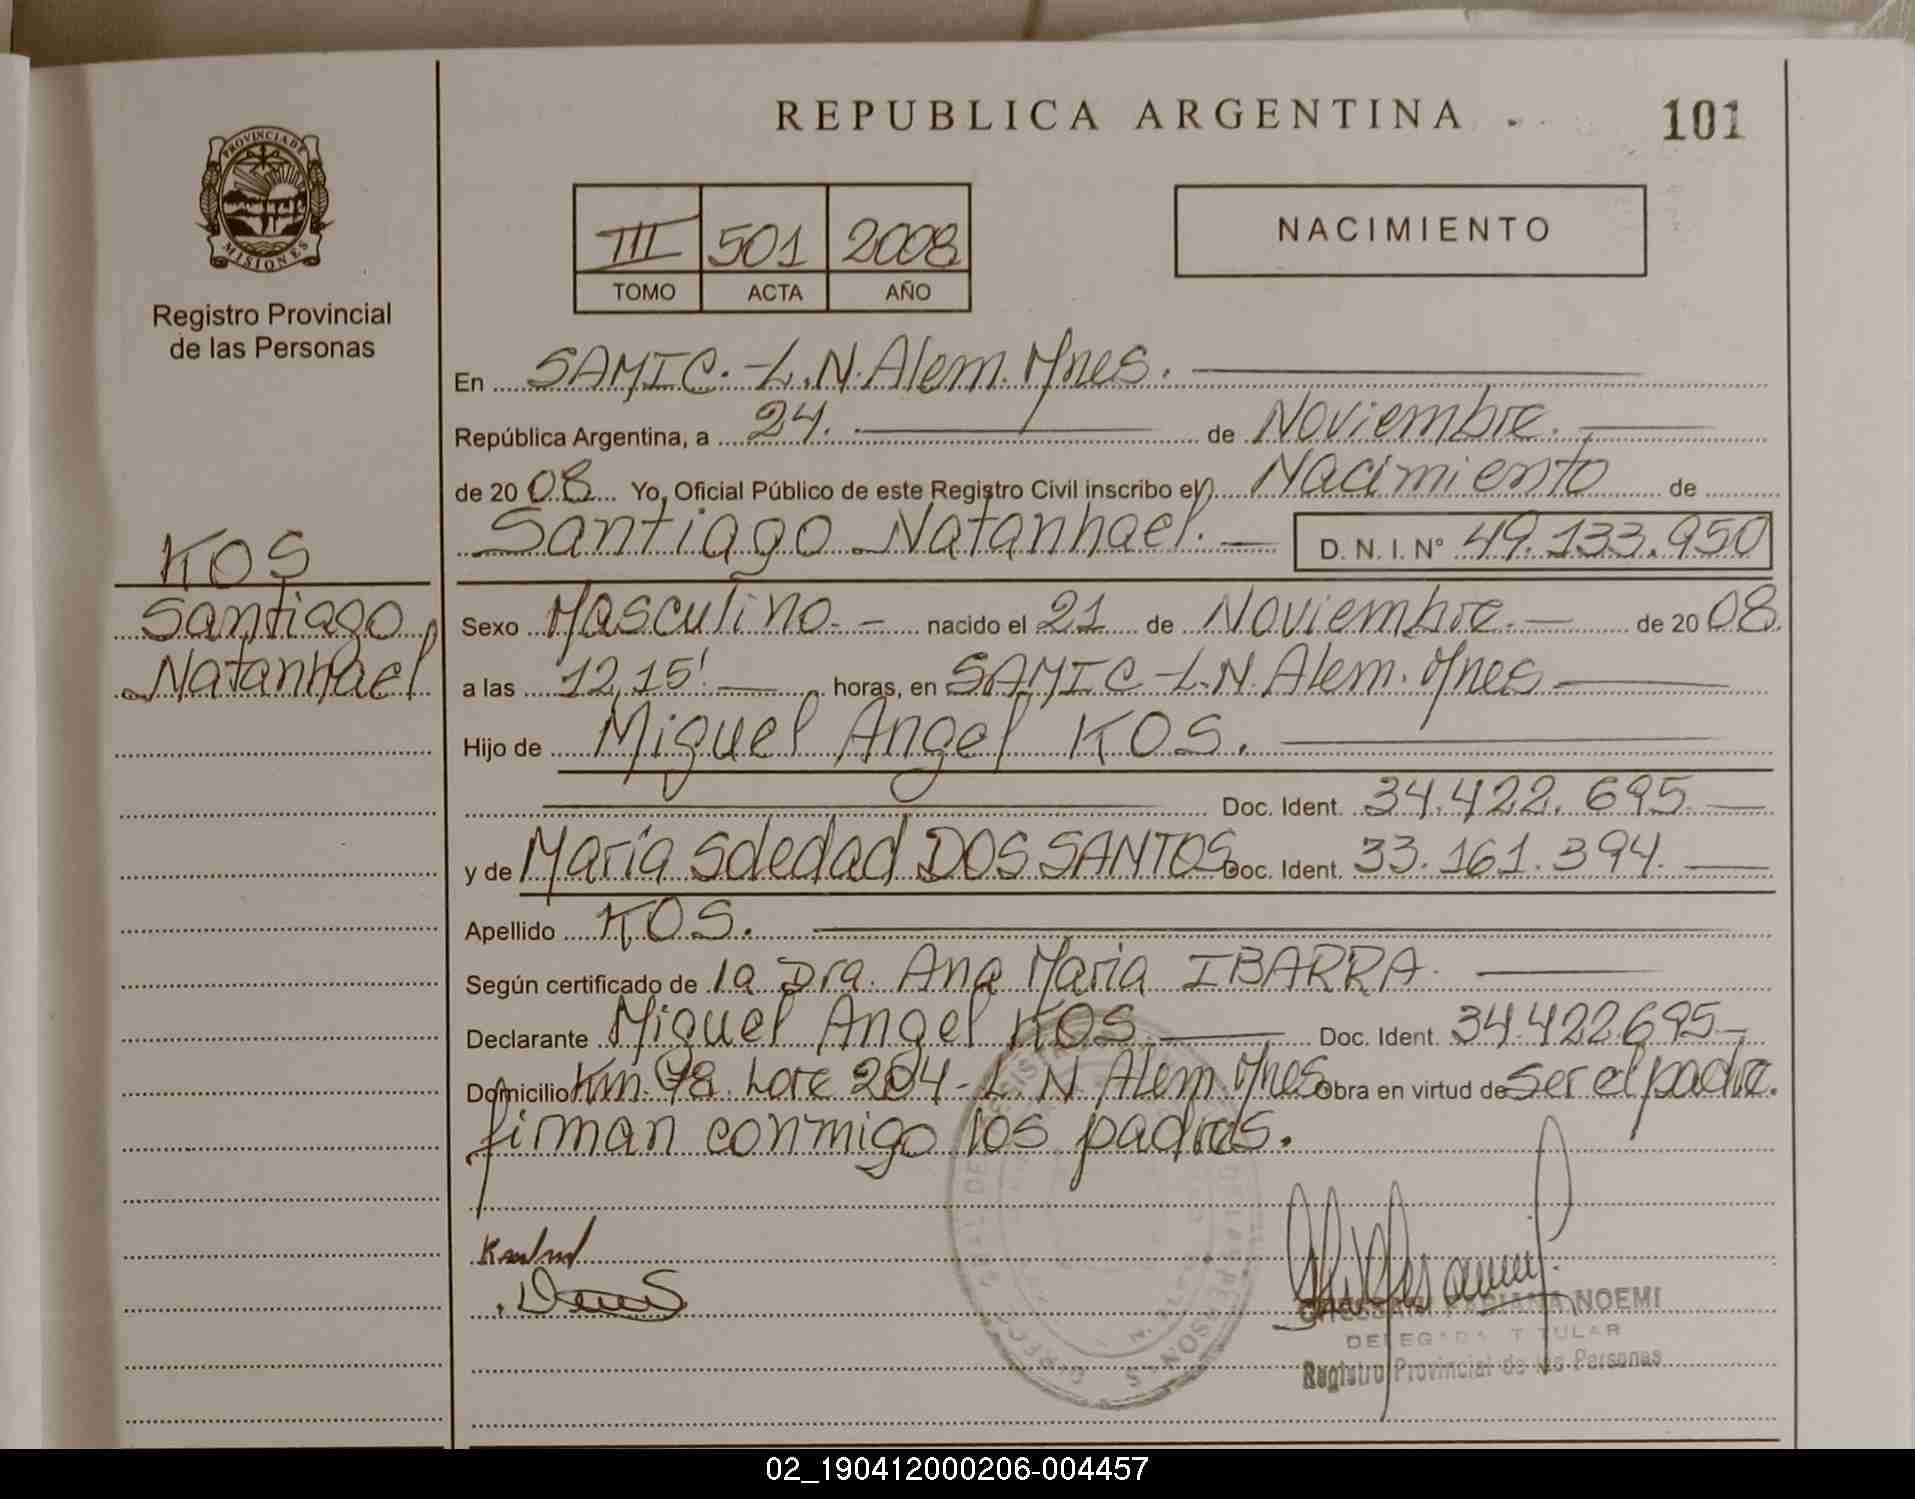 REPUBLICA ARGENTINA
101
PROVINCIA DE MISIONES
Registro Provincial
de las Personas
III 501 2008
TOMO ACTA AÑO
NACIMIENTO
En SAMIC.-L.N.Alem.Mnes.
República Argentina, a 24. de Noviembre.
de 2008 Yo, Oficial Público de este Registro Civil inscribo el Nacimiento de
Santiago Natanhael. D. N. I. N° 49.133.950
KOS
Santiago
Natanhael
Sexo Masculino.- nacido el 21 de Noviembre.- de 2008.
a las 12,15' horas, en SAMIC-L.N.Alem.Mnes
Hijo de Miguel Angel KOS.
Doc. Ident. 34.422.695
y de María Soledad DOS SANTOS Doc. Ident. 33.161.394.
Apellido KOS.
Según certificado de la Dra. Ana Maria IBARRA.
Declarante Miguel Angel KOS Doc. Ident. 34.422695
Domicilio Km. 78 Lote 204-L.N.Alem.Mnes Obra en virtud de ser el padre.
firman conmigo los padres.
NOEMI
DELEGADA TITULAR
Registro Provincial de las Personas
02_190412000206-004457